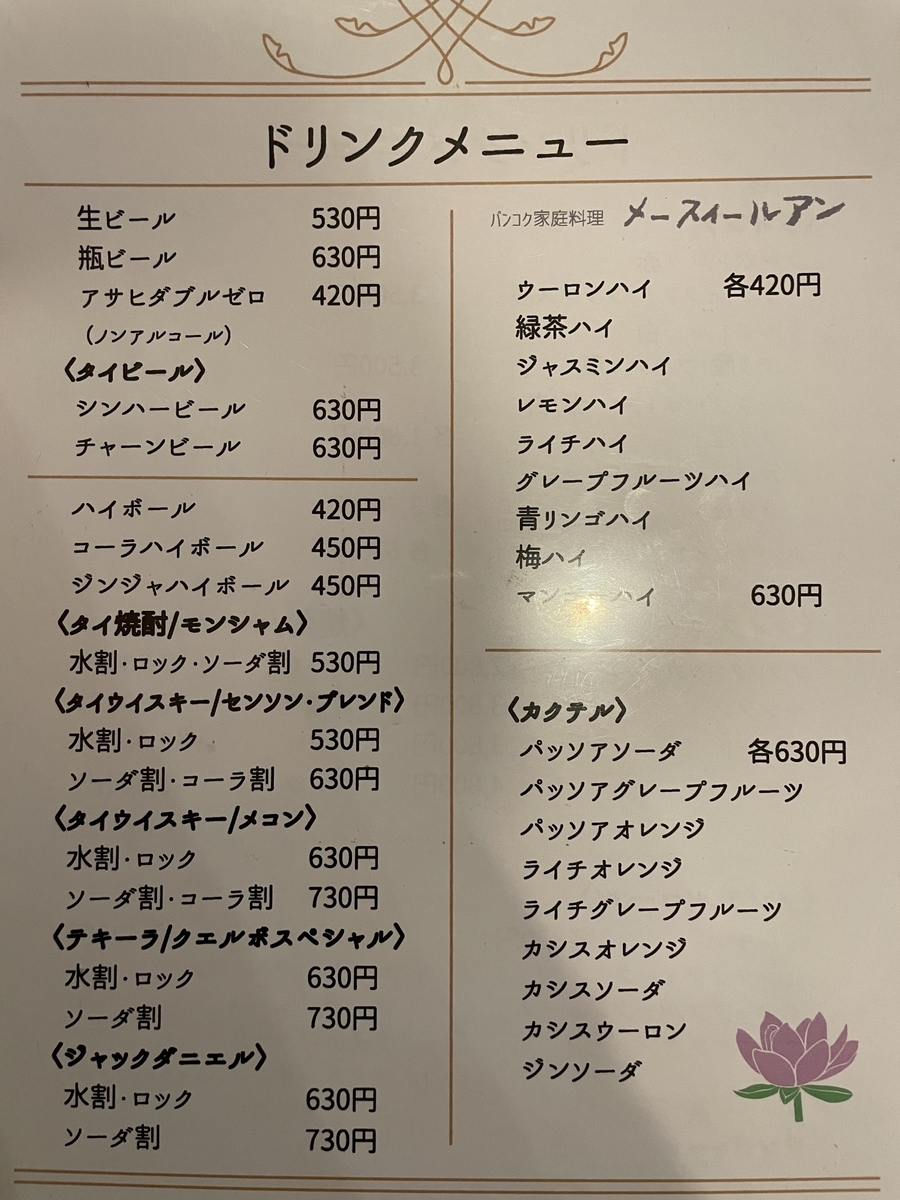 ドリンクメニュー
生ビール 530円
瓶ビール 630円
アサヒダブルゼロ 420円
(ノンアルコール)
〈タイビール〉
シンハービール 630円
チャーンビール 630円
ハイボール 420円
コーラハイボール 450円
ジンジャハイボール 450円
〈タイ焼酎/モンシャム〉
水割・ロック・ソーダ割 530円
〈タイウイスキー/センソン・ブレンド〉
水割・ロック 530円
ソーダ割・コーラ割 630円
〈タイウイスキー/メコン〉
水割・ロック 630円
ソーダ割・コーラ割 730円
〈テキーラ/クエルボスペシャル〉
水割・ロック 630円
ソーダ割 730円
〈ジャックダニエル〉
水割・ロック 630円
ソーダ割 730円
バンコク家庭料理 メースィールアン
ウーロンハイ 各420円
緑茶ハイ
ジャスミンハイ
レモンハイ
ライチハイ
グレープフルーツハイ
青リンゴハイ
梅ハイ
630円
〈カクテル〉
パッソアソーダ 各630円
パッソアグレープフルーツ
パッソアオレンジ
ライチオレンジ
ライチグレープフルーツ
カシスオレンジ
カシスソーダ
カシスウーロン
ジンソーダ